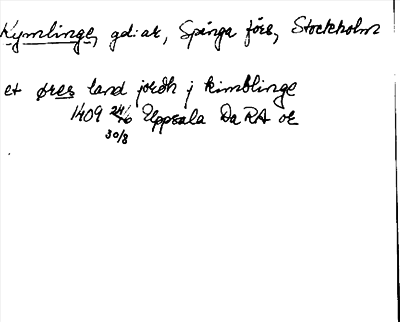 Kymlinge, gd:ar, Spånga förs, Stockholm
et øres land jordh j kimblinge
1409 24/10 Uppsala Da RA or
30/8